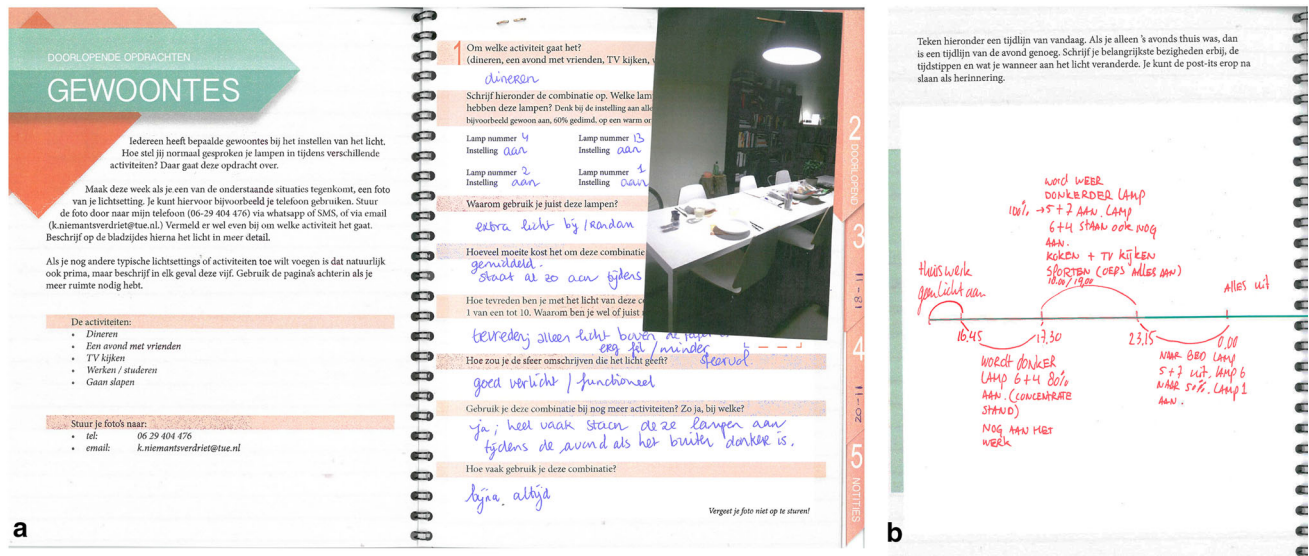 DOORLOPENDE OPDRACHTEN
GEWOONTES
Iedereen heeft bepaalde gewoontes bij het instellen van het licht.
Hoe stel jij normaal gesproken je lampen in tijdens verschillende
activiteiten? Daar gaat deze opdracht over.
Maak deze week als je een van de onderstaande situaties tegenkomt, een foto
van je lichtsetting. Je kunt hiervoor bijvoorbeeld je telefoon gebruiken. Stuur
de foto door naar mijn telefoon (06-29 404 476) via whatsapp of SMS, of via email
(k.niemantsverdriet@tue.nl.) Vermeld er wel even bij om welke activiteit het gaat.
Beschrijf op de bladzijdes hierna het licht in meer detail.
Als je nog andere typische lichtsettings of activiteiten toe wilt voegen is dat natuurlijk
ook prima, maar beschrijf in elk geval deze vijf. Gebruik de pagina's achterin als je
meer ruimte nodig hebt.
De activiteiten:
• Dineren
• Een avond met vrienden
• TV kijken
• Werken / studeren
• Gaan slapen
Stuur je foto's naar:
• tel: 06 29 404 476
• email: k.niemantsverdriet@tue.nl
a
1
Om welke activiteit gaat het?
(dineren, een avond met vrienden, TV kijken,
dineren
Schrijf hieronder de combinatie op. Welke
hebben deze lampen? Denk bij de instelling aan
bijvoorbeeld gewoon aan, 60% gedimd, op een warm
Lamp nummer 4 Lamp nummer 13
Instelling aan Instelling aan
Lamp nummer 2 Lamp nummer 1
Instelling aan Instelling aan
Waarom gebruik je juist deze lampen?
extra licht bij / rondom
Hoeveel moeite kost het om deze combinatie
gemiddeld.
staat al zo aan tijdens
Hoe tevreden ben je met het licht van deze
1 van een tot 10. Waarom ben je wel of juist
tevreden, alleen licht boven de
erg fel / minder
sfeervol
Hoe zou je de sfeer omschrijven die het licht geeft?
goed verlicht / functioneel
Gebruik je deze combinatie bij nog meer activiteiten? Zo ja, bij welke?
ja; heel vaak staan deze lampen aan
tijdens de avond als het buiten donker is.
Hoe vaak gebruik je deze combinatie?
bijna altijd
Vergeet je foto niet op te sturen!
2 DOORLOPEND
3
18-11
4
20-11
5 NOTITIES
b
Teken hieronder een tijdlijn van vandaag. Als je alleen 's avonds thuis was, dan
is een tijdlijn van de avond genoeg. Schrijf je belangrijkste bezigheden erbij, de
tijdstippen en wat je wanneer aan het licht veranderde. Je kunt de post-its erop na
slaan als herinnering.
word WEER
DONKERDER LAMP
100% → 5+7 AAN. LAMP
6+4 STAAN OOK NOG
AAN.
KOKEN + TV KIJKEN
SPORTEN (OEPS ALLES AAN)
18.00/19.00
thuiswerk
geen licht aan
ALLES UIT
16.45
17.30
23.15
0.00
WORDT DONKER
LAMP 6+4 80%
AAN. (CONCENTRATE
STAND)
NOG AAN HET
WERK
NAAR BED LAMP
5+7 UIT. LAMP 6
NAAR 50%. LAMP 1
AAN.